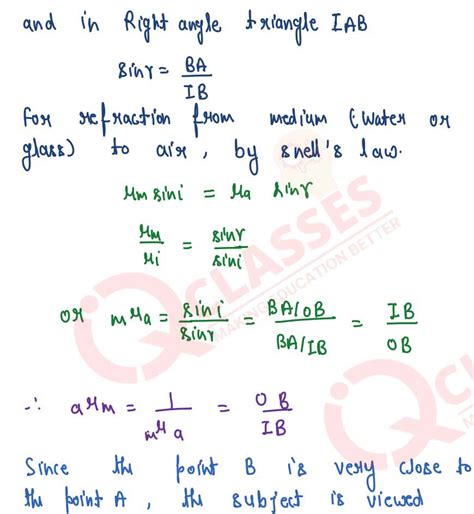 and in Right angle triangle IAB
sinr = BA/IB
For refraction from medium (water or
glass) to air, by snell's law.
μm sini = μa sinr
μm/μi = sinr/sini
or mμa = sini/sinr = BA/OB / BA/IB = IB/OB
∴ aμm = 1/mμa = OB/IB
Since the point B is very close to
the point A, the subject is viewed
IQ CLASSES
MAKING EDUCATION BETTER